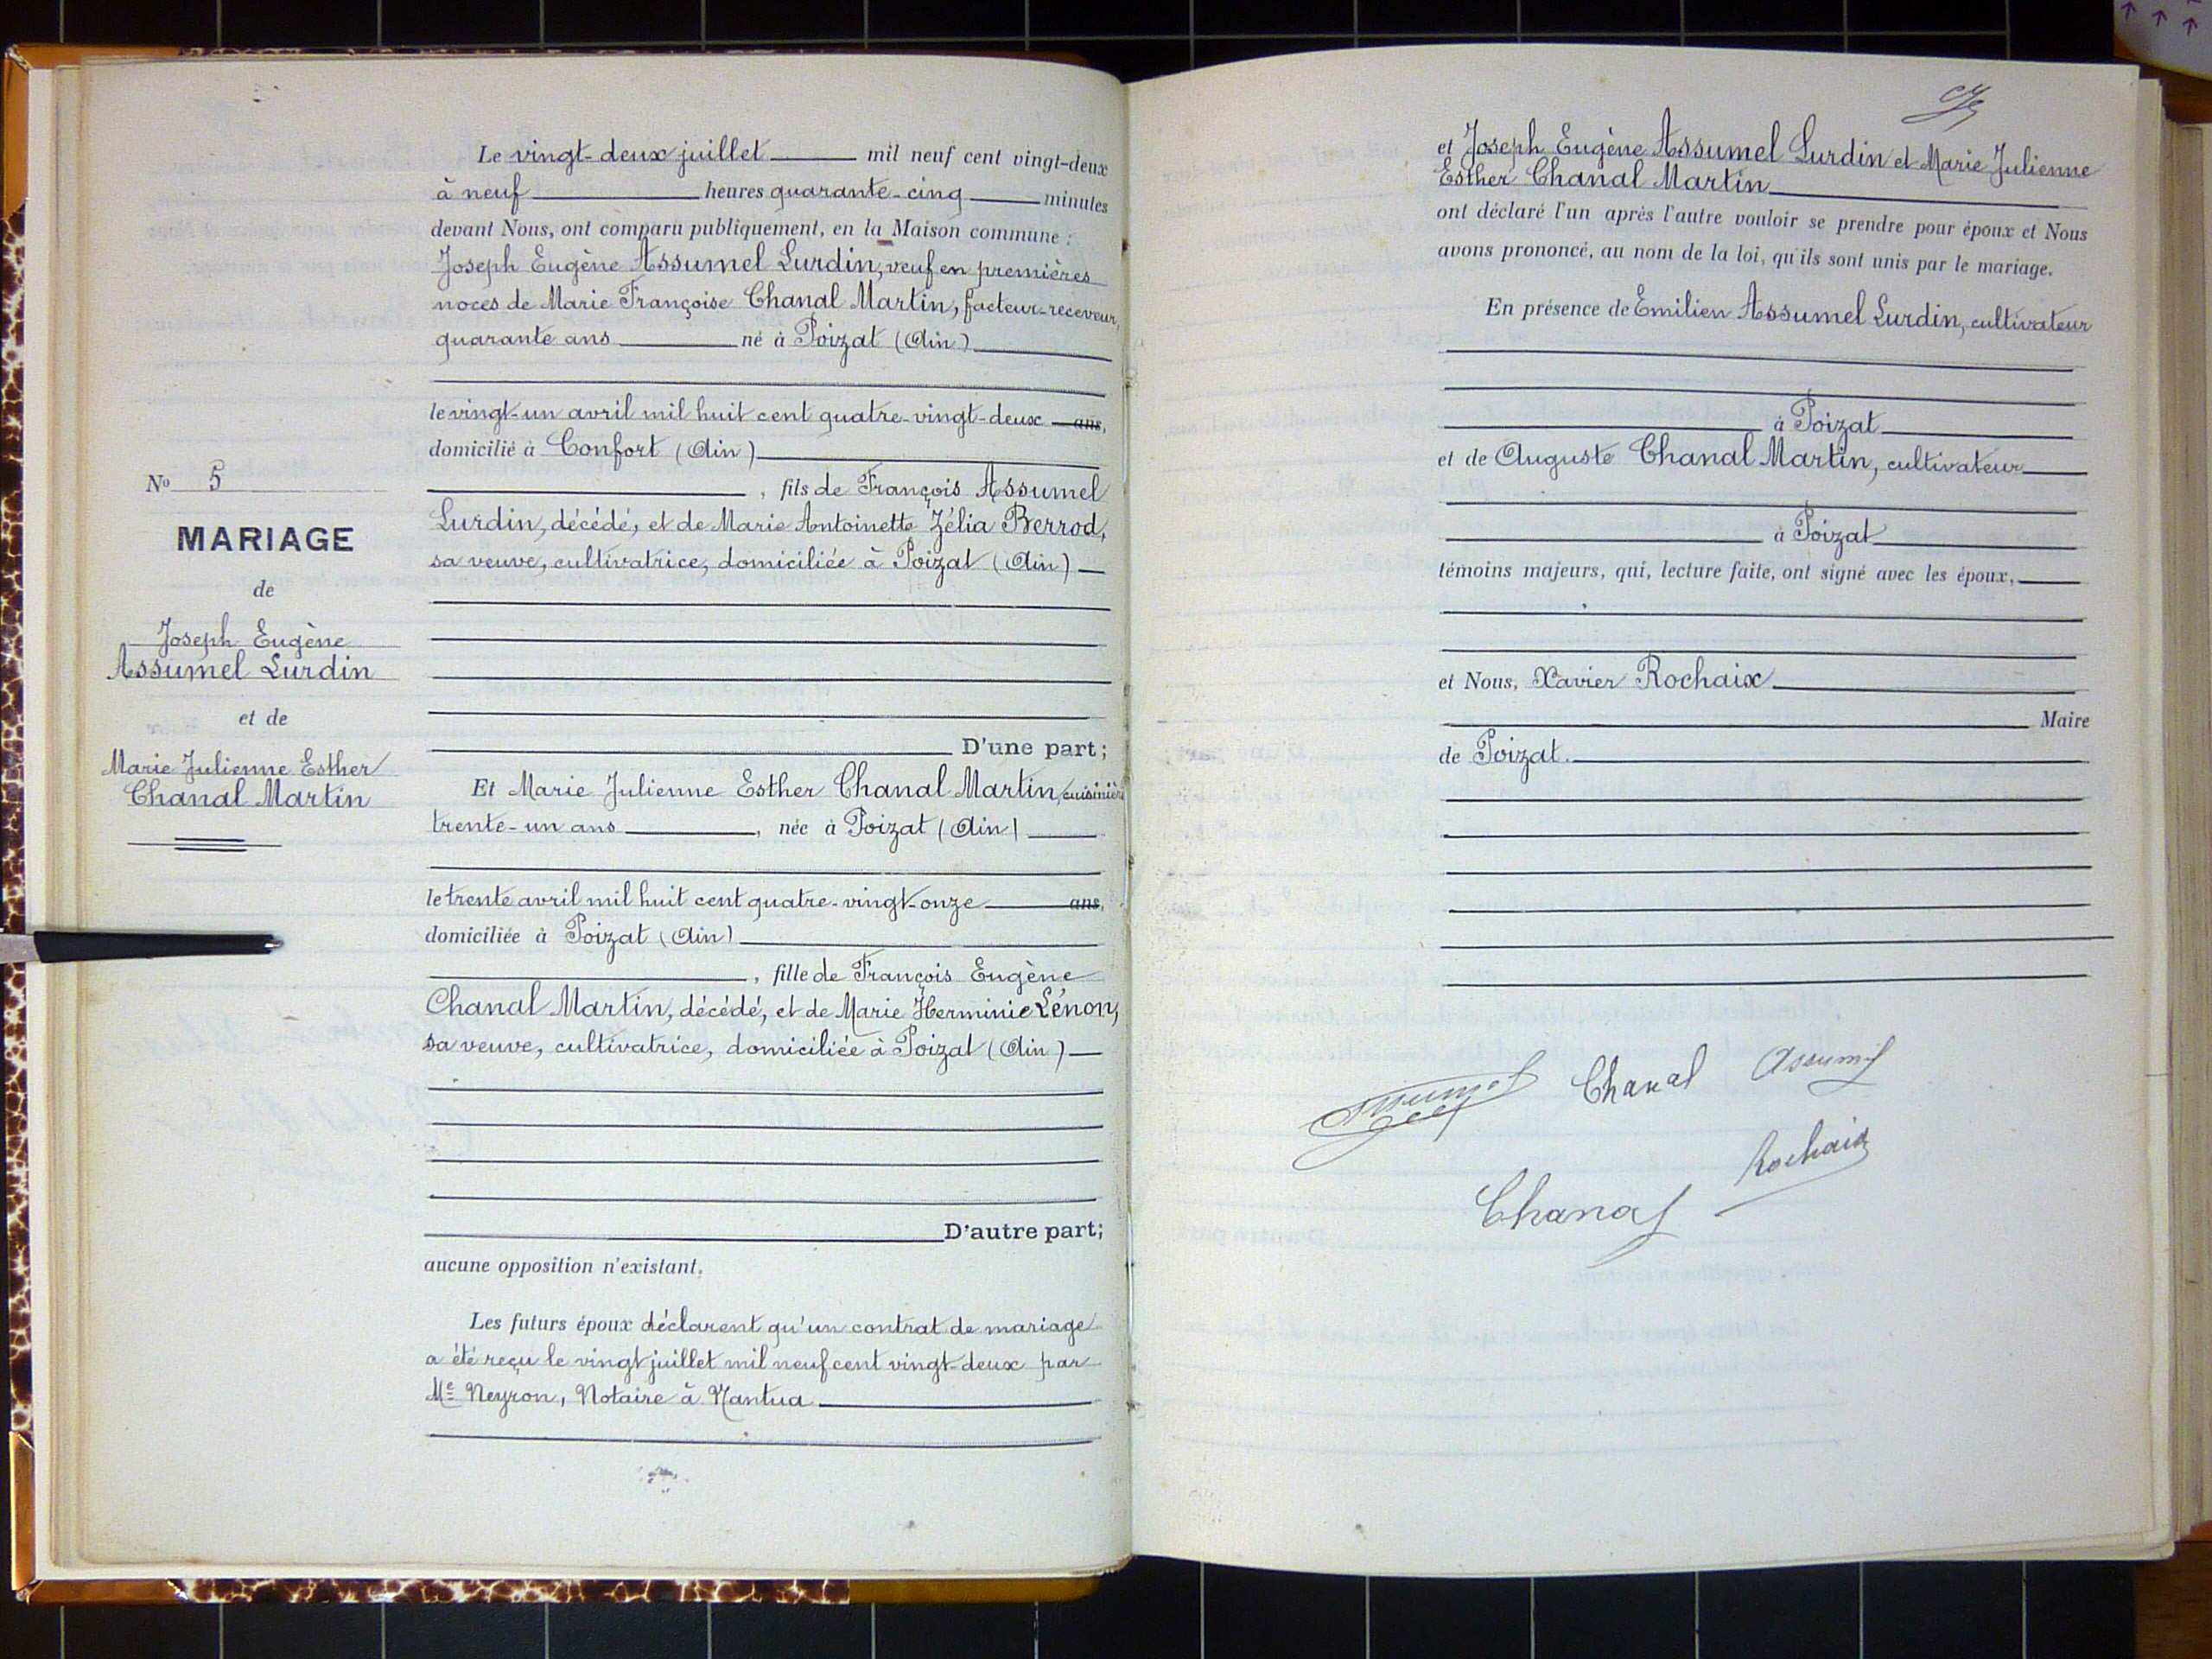 Le vingt-deux juillet mil neuf cent vingt-deux
à neuf heures quarante-cinq minutes
devant Nous, ont comparu publiquement, en la Maison commune :
Joseph Eugène Assumel Lurdin, veuf en premières
noces de Marie Françoise Chanal Martin, facteur-receveur,
quarante ans né à Poizat (Ain)
le vingt-un avril mil huit cent quatre-vingt-deux ans,
domicilié à Confort (Ain)
, fils de François Assumel
Lurdin, décédé, et de Marie Antoinette Zélia Berrod,
sa veuve, cultivatrice, domiciliée à Poizat (Ain)
D'une part;
Et Marie Julienne Esther Chanal Martin, cuisinière
trente-un ans, née à Poizat (Ain)
le trente avril mil huit cent quatre-vingt-onze ans,
domiciliée à Poizat (Ain)
, fille de François Eugène
Chanal Martin, décédé, et de Marie Herminie Lénon,
sa veuve, cultivatrice, domiciliée à Poizat (Ain)
D'autre part;
aucune opposition n'existant,
Les futurs époux déclarent qu'un contrat de mariage
a été reçu le vingt juillet mil neuf cent vingt-deux par
Me Neyron, Notaire à Nantua
No 5
MARIAGE
de
Joseph Eugène
Assumel Lurdin
et de
Marie Julienne Esther
Chanal Martin
et Joseph Eugène Assumel Lurdin et Marie Julienne
Esther Chanal Martin
ont déclaré l'un après l'autre vouloir se prendre pour époux et Nous
avons prononcé, au nom de la loi, qu'ils sont unis par le mariage.
En présence de Emilien Assumel Lurdin, cultivateur
à Poizat
et de Auguste Chanal Martin, cultivateur
à Poizat
témoins majeurs, qui, lecture faite, ont signé avec les époux,
et Nous, Xavier Rochaix
Maire
de Poizat.
Assumel Chanal Assumel
Rochaix
Chanal